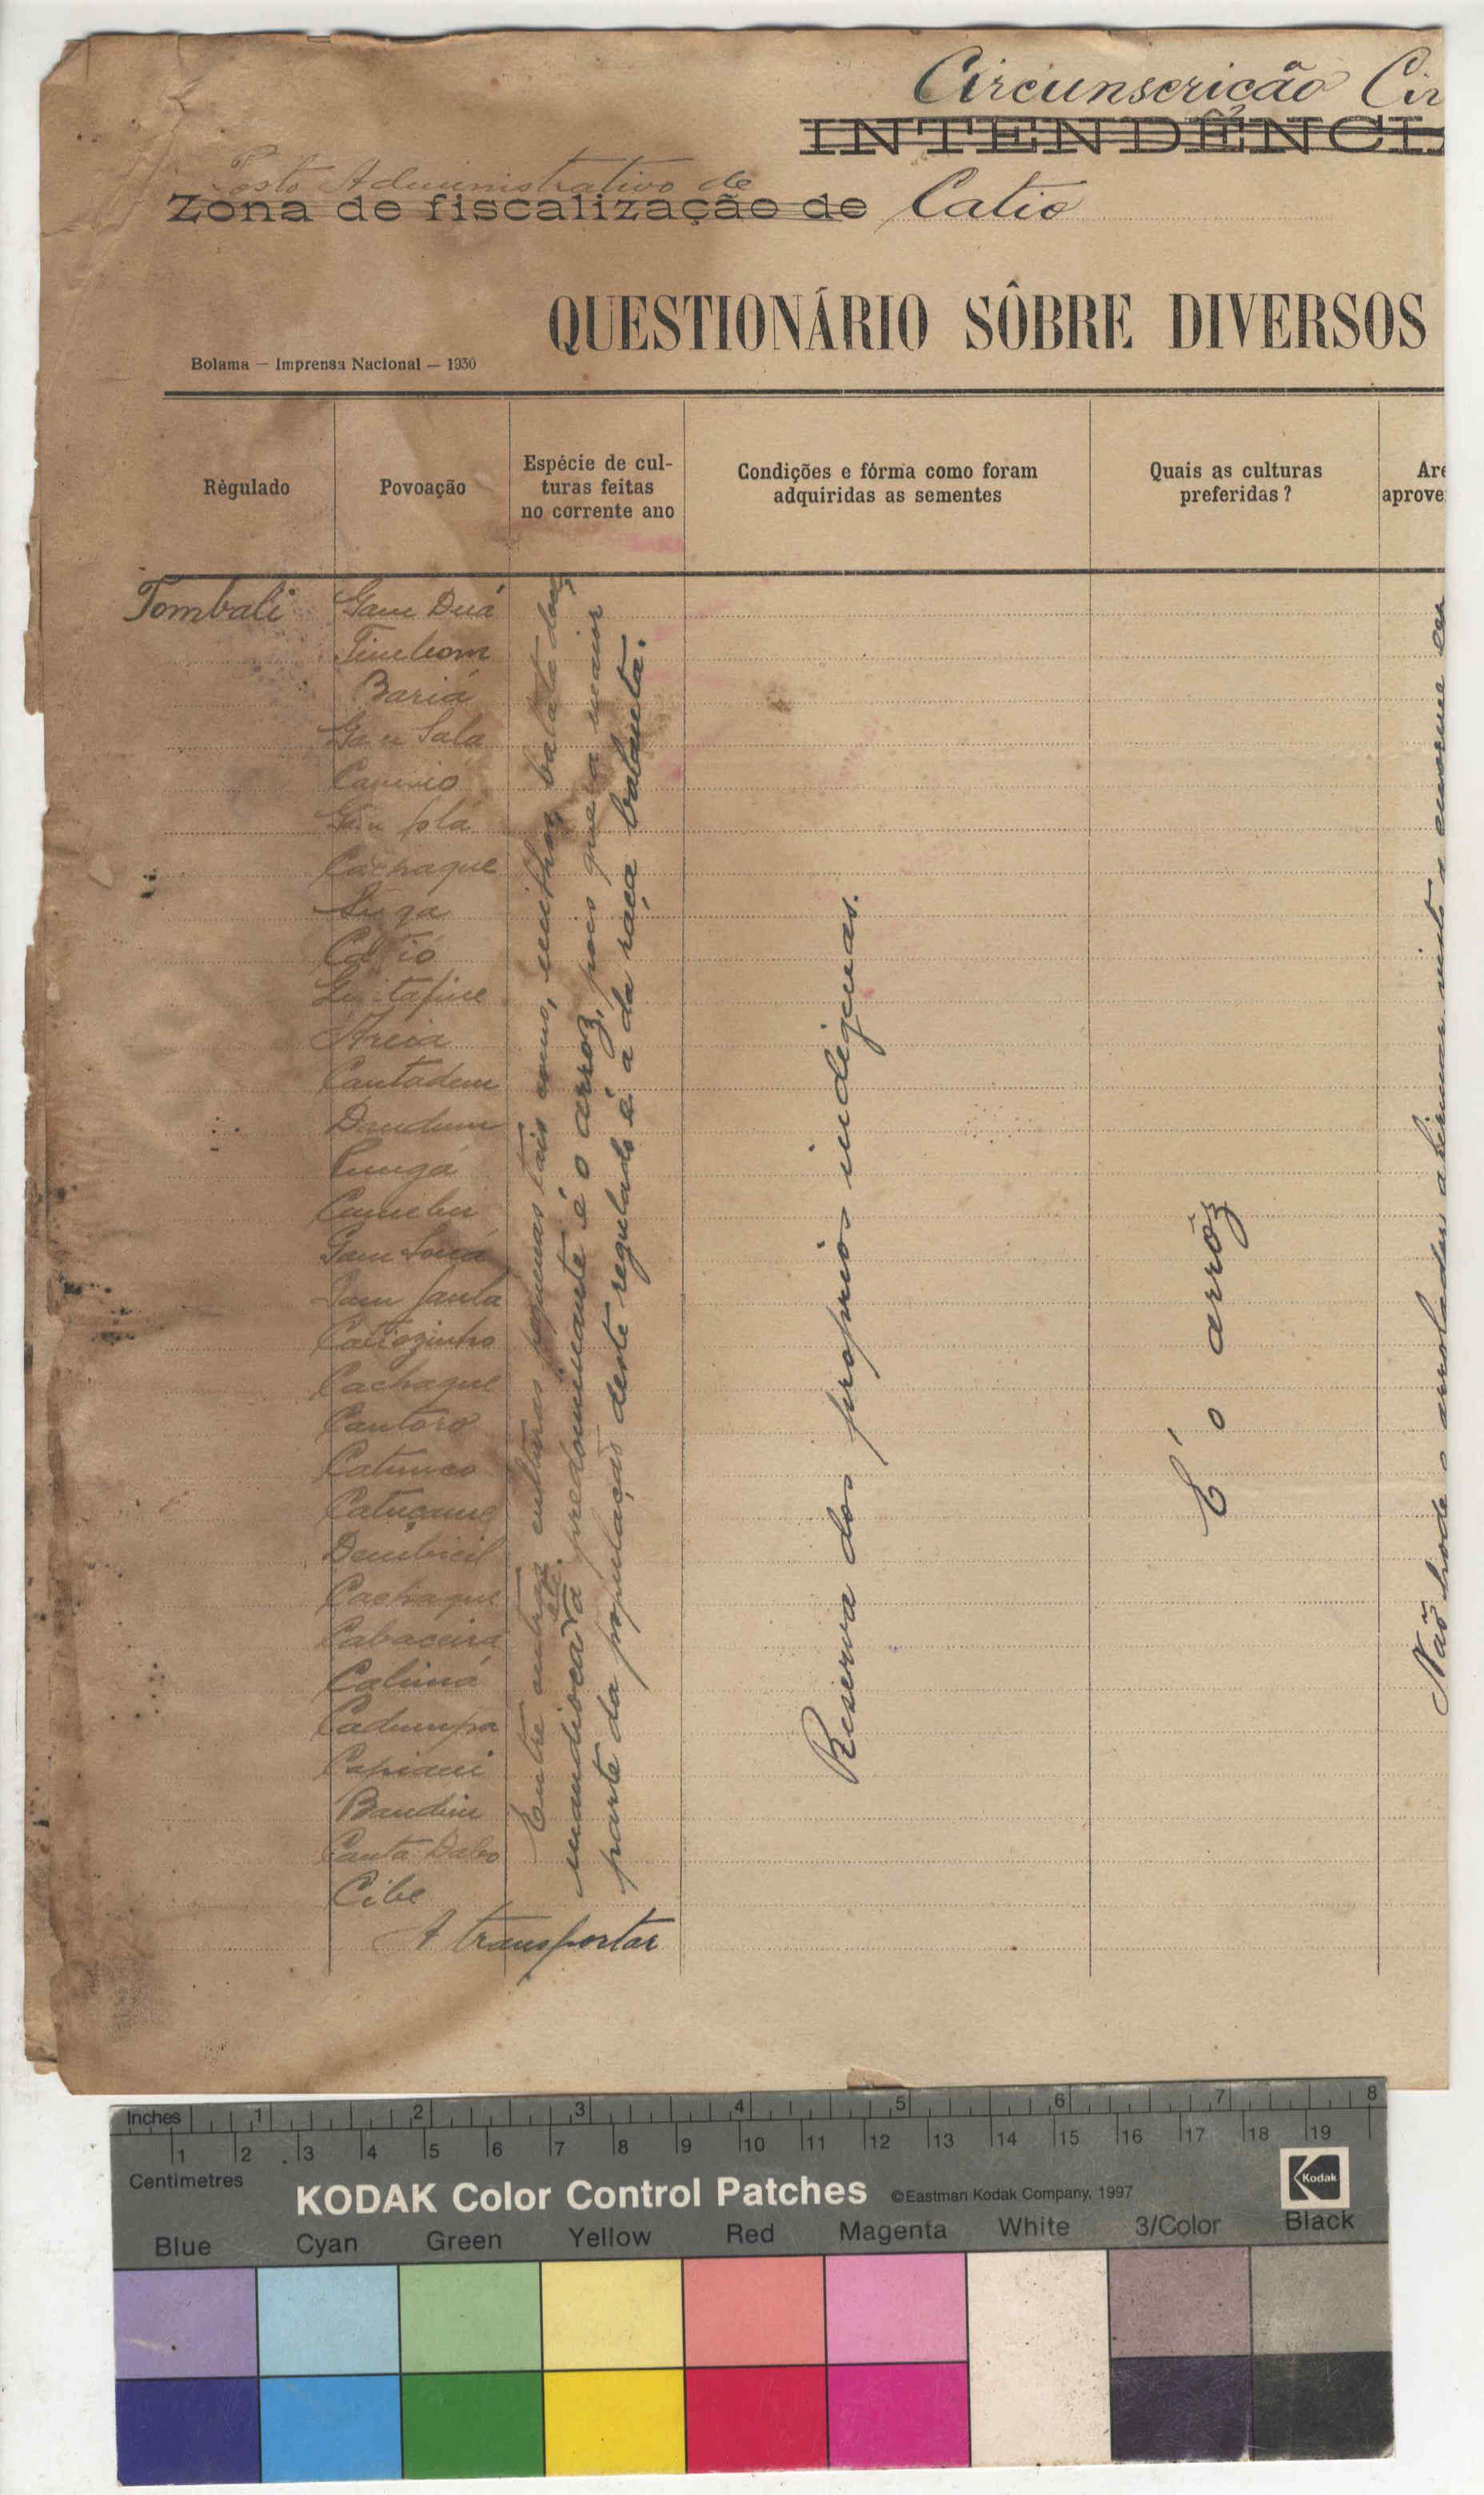 Circunscrição Cir
INTENDÊNCI
Posto Administrativo de
Zona de fiscalização de Catio
QUESTIONÁRIO SÔBRE DIVERSOS
Bolama — Imprensa Nacional — 1930
Règulado
Povoação
Espécie de cul-
turas feitas
no corrente ano
Condições e fórma como foram
adquiridas as sementes
Quais as culturas
preferidas?
Are
aprove
Tombali
Gam Duá
Timbom
Bariá
Sala
Cachaque
Catió
Areia
Cantadem
Dandum
Pungá
Gam
Gam
Catiozinho
Cachaque
Cantoro
Catunco
Catucame
Cachaque
Cabaceira
Cadumpa
Bandim
Canta Dabo
Cibe
A transportar
Entre outras culturas pequenas tais como, milho, batata doce,
mandioca etc. a predominante é o arroz, pois que a maior
parte da população deste regulado é a da raça balanta.
Reserva dos proprios indigenas.
É o arrôz
Não pode o arrolador
Inches 1 2 3 4 5 6 7 8
1 2 3 4 5 6 7 8 9 10 11 12 13 14 15 16 17 18 19
Centimetres
KODAK Color Control Patches
©Eastman Kodak Company, 1997
Kodak
Blue Cyan Green Yellow Red Magenta White 3/Color Black